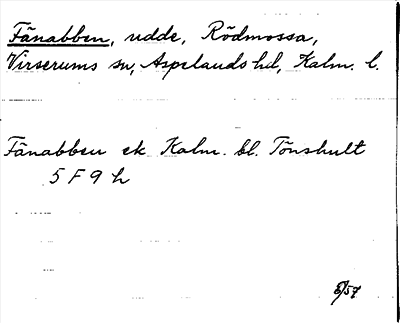 Fänabben, udde, Rödmossa,
Virserums sn, Aspelands hd, Kalm. l.
Fänabben ek Kalm. bl. Tönshult
5 F 9 h
8/57